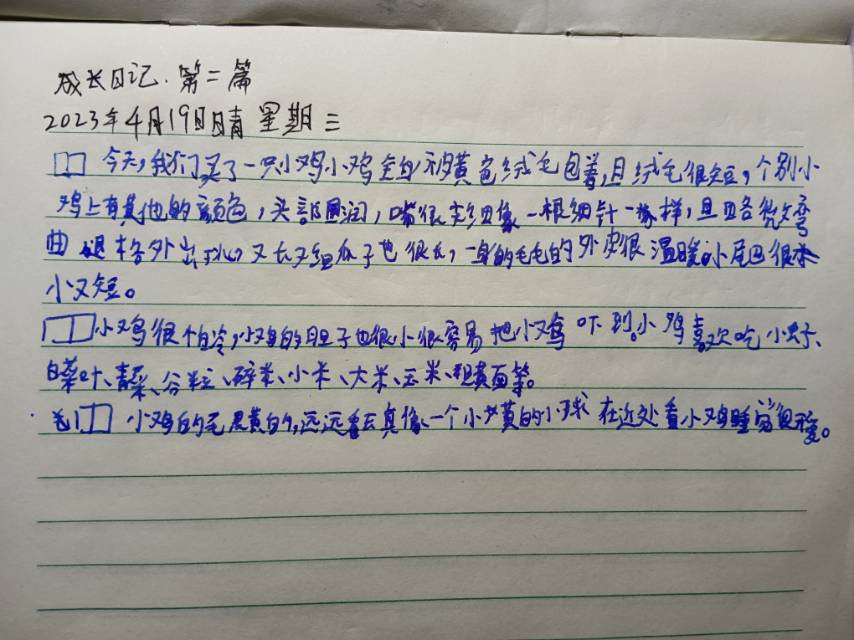 成长日记.第二篇
2023年4月19日晴 星期三
今天,我们买了一只小鸡小鸡全身被黄色绒毛包着,且绒毛很短,个别小
鸡上有其他的颜色,头部圆润,嘴很 像一根细针一样,且略微弯
曲 腿格外 ,又长又细爪子也很长,一身的毛毛的外皮很温暖小尾巴很
小又短。
小鸡很怕冷,小鸡的胆子也很小很容易把小鸡吓到。小鸡喜欢吃小虫子、
白菜叶、青菜、谷粒、碎米、小米、大米、玉米、粗黄面等。
小鸡的毛是黄的,远远看去真像一个小黄的小球 在近处看小鸡睡觉很可爱。